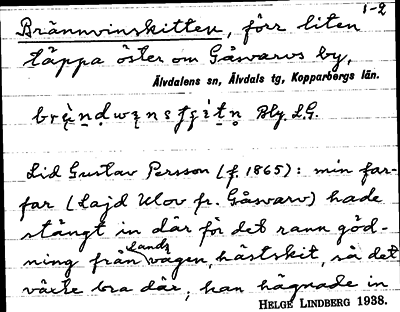 1-2
Brännvinskitten, förr liten
täppa öster om Gåsvarvs by,
Älvdalens sn, Älvdals tg, Kopparbergs län.
Bly. L.G.
Lid Gustav Persson (f. 1865): min far-
far (Lajd Ulov fr. Gåsvarv) hade
stängt in där för det rann göd-
ning från landsvägen, hästskit, så det
växte bra där, han hägnade in
HELGE LINDBERG 1938.